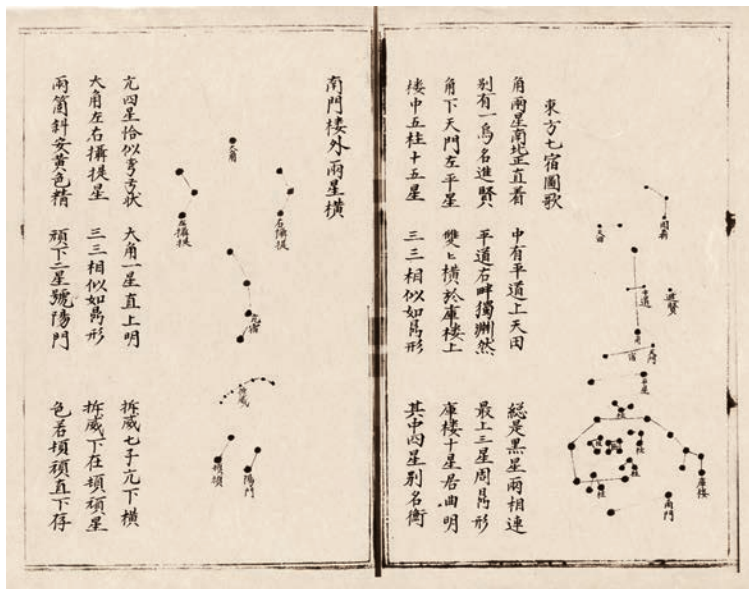 東方七宿圖歌
角兩星南北正直着 中有平道上天田 総是黒星兩相連
别有一烏名進賢 平道右畔獨渊然 最上三星周鼎形
角下天門左平星 雙〻橫於庫楼上 庫楼十星屈曲明
楼中五柱十五星 三三相似如鼎形 其中四星别名衡
周鼎
天田
平道
進賢
角宿
天門
平星
柱
柱
柱
柱
庫楼
南門
南門楼外兩星橫
亢四星恰似弯弓状 大角一星直上明 拆威七子亢下橫
大角左右攝提星 三三相似如鼎形 拆威下在頓頑星
兩箇斜安黄色精 頑下二星號陽門 色若頓頑直下存
大角
右攝提
左攝提
亢宿
拆威
頓頑
陽門